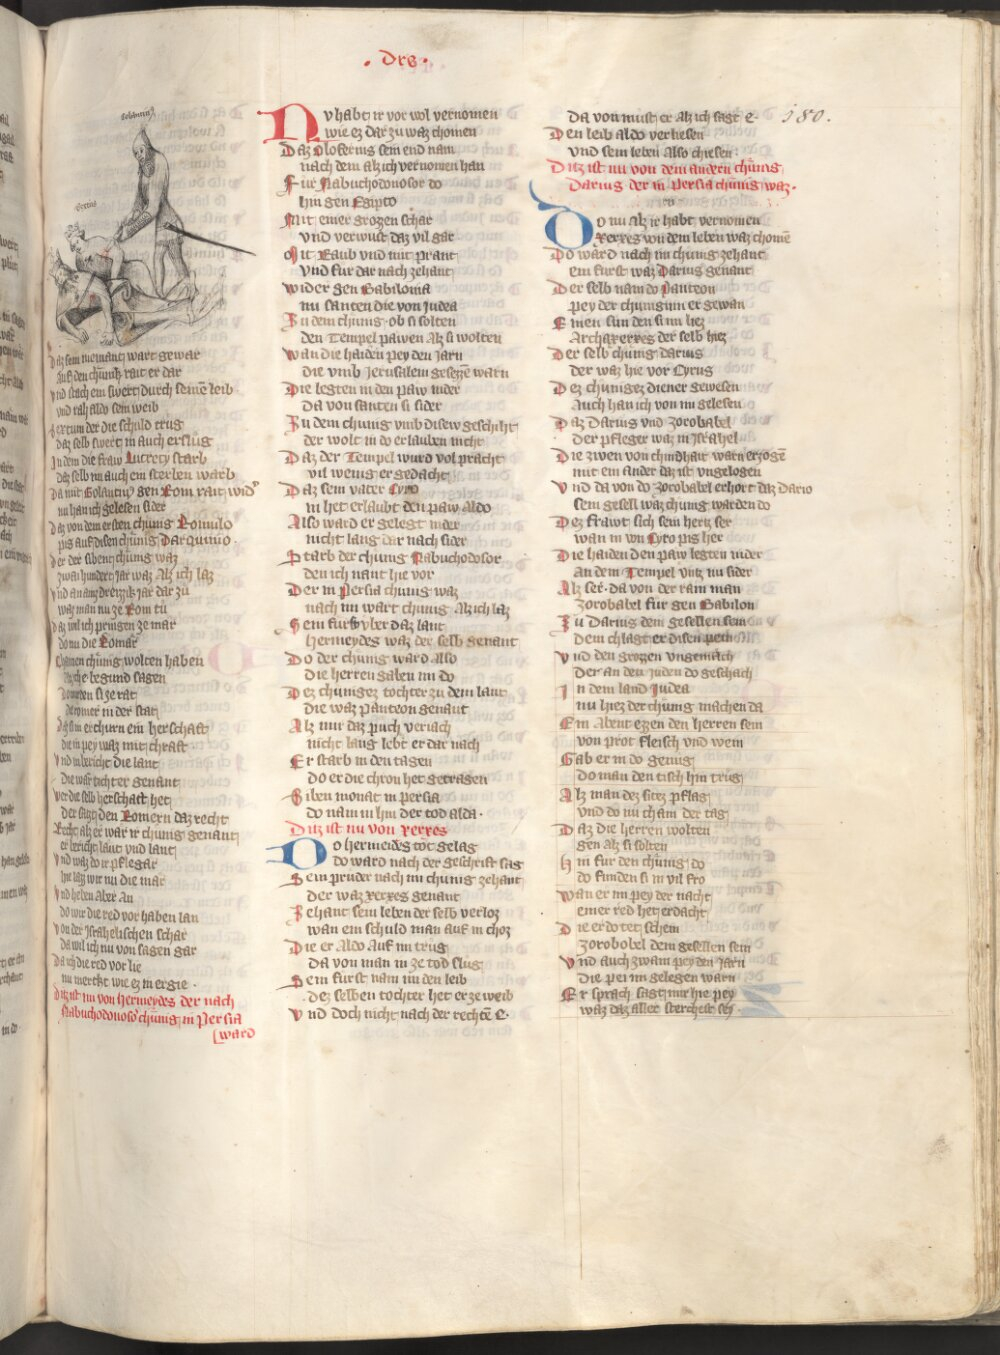 · Drs ·
180.
Daz sein niemant wart gewar
Auf den chunig rait er dar
Vnd stach ein swert durch seinē leib
vnd rach also sein weib
Sextum der die schuld trug
daz selb swert in auch erslug
In dem die fraw Lucrecy starb
daz selb nu auch ein sterben warb
Da mit Collantiny gen Rom rait wid
nu han ich gelesen sider
Daz von dem ersten chunig Romulo
pis auf disen chunig Tarquinio
Der der sibent chunig waz
zwai hundert jar waz Alz ich laz
Vnd an ainz dreizzik jar dar zu
waz man nu ze Rom tu
Daz wil ich pringen ze mar
do nu die Romar
chainen chunig wolten haben
begund sagen
si ze rat
in der stat
ein herschaft
die in pey waz mit chraft
Vnd in bericht die lant
Die war tichter genant
wer die selb herschaft het
der sagt den Romern daz recht
Recht alz er war ir chunig genant
er bericht laut vnd lant
Vnd waz do ir pflegar
hie laz wir nu die mar
Vnd heben Aber An
do wir die red vor haben lan
Von der Israhelischen schar
da wil ich nu von sagen gar
Da ich die red vor lie
nu merckt wie ez in ergie ·
Ditz ist nu von hermeydes der nach
Nabuchodonosor chunig in Persia
ward
Nv habt ir vor wol vernomen
wie ez dar zu waz chomen
Daz Olofernus sein end nam
nach dem alz ich vernomen han
Für Nabuchodonosor do
hin gen Egipto
Mit einer grozzen schar
vnd verwust daz vil gar
Mit Raub vnd mit prant
Vnd fur dar nach zehant
wider gen Babilonia
nu santen die von Judea
Zu dem chunig ob si solten
den Tempel pawen Alz si wolten
wan die haiden pey den jarn
die vmb Jerusalem gesezzē warn
Die legten in den paw nider
da von santen si sider
Zu dem chunig vmb disew geschiht
der wolt in do erlauben nicht
Daz der Tempel wurd volpracht
vil wenig er gedacht
Daz sein vater Cyro
in het erlaubt den paw Aldo
Also ward er gelegt nider
nicht lang dar nach sider
Starb der chunig Nabuchodosor
den ich nant hie vor
Der in Persia chunig waz
nach im wart chunig Alz ich laz
Sein furst vber daz lant
hermeydes waz der selb genant
Do der chunig ward Also
die herren gaben im do
Dez chunigez tochter zu dem lant
die waz panteon genant
Alz mir daz puch veriach
nicht lang lebt er dar nach
Er starb in den tagen
do er die chron het getragen
Siben monat in Persia
do nam in hin der tod alda ·
Ditz ist nu von Xerxes
Do hermeides tot gelag
do ward nach der geschrift sag
Sein pruder nach im chunig zehant
der waz Xerxes genant
Zehant sein leben der selb verloz
wan ein schuld man auf in choz
Die er Aldo Auf im trug
da von man in ze tod slug
Sein furst nam im den leib
dez selben tochter het er ze weib
Vnd doch nicht nach der rechtē E ·
da von must er Alz ich sagt e
Den leib aldo verliesen
vnd sein leben Also chiesen ·
Ditz ist nu von dem andern chunig
Darius der in Persia chunig waz ·
Do nu Alz ir habt vernomen
Xerxes von dem leben waz chomē
Do ward nach im chunig zehant
ein furst waz Darius genant
Der selb nam do Panteon
pey der chuniginn er gewan
Einen sun den si im hiez
Archaxerxes der selb hiez
Der selb chunig darius
der waz hie vor Cyrus
Dez chunigez diener gewesen
Auch han ich von im gelesen
Daz Darius vnd zorobabel
Der pfleger waz in Israhel
Die zwen von chindhait warn erzogē
mit ein ander daz ist vngelogen
Vnd da von do zorobabel erhort daz Dario
sein gesell waz chunig warden do
Dez frawt sich sein hertz ser
wan in von Cyro pis her
Die haiden den paw legten nider
An dem Tempel vntz nu sider
Alz ser · da von der ram man
Zorobabel fur gen Babilon
Zu Darius dem gesellen sein
Dem chlagt er disen pein
Vnd den grozzen vngemach
Der an den Juden do geschach
In dem land Judea
nu hiez der chunig machen da
Ein Abent ezzen den herren sein
von prot fleisch vnd wein
Gab er in do genug
do man den tisch hin trug
Alz man dez sitez pflag
vnd do nu cham der tag
Daz die herren wolten
gen alz si solten
Hin fur den chunig do
do funden si in vil fro
wan er im pey der nacht
einer red het erdacht
Die er do tet schein
zorobobel dem gesellen sein
Vnd auch zwain pey den jarn
die pei im gelegen warn
Er sprach sagt mir hie pey
waz daz aller sterchest sey ·